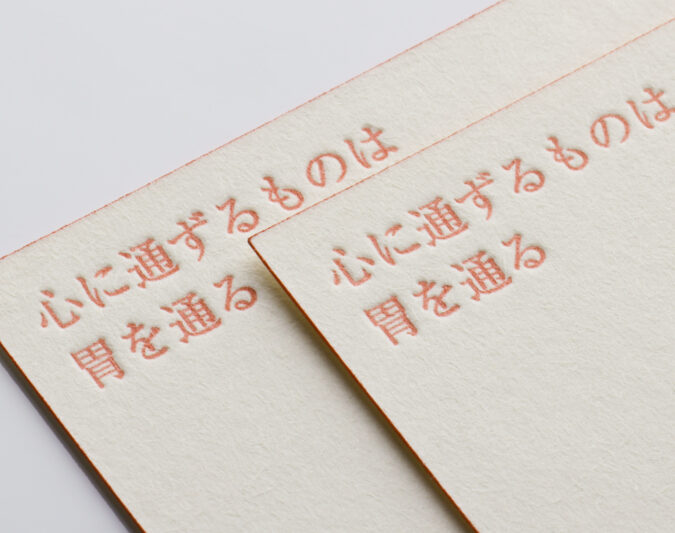 心に通ずるものは
胃を通る
心に通ずるものは
胃を通る